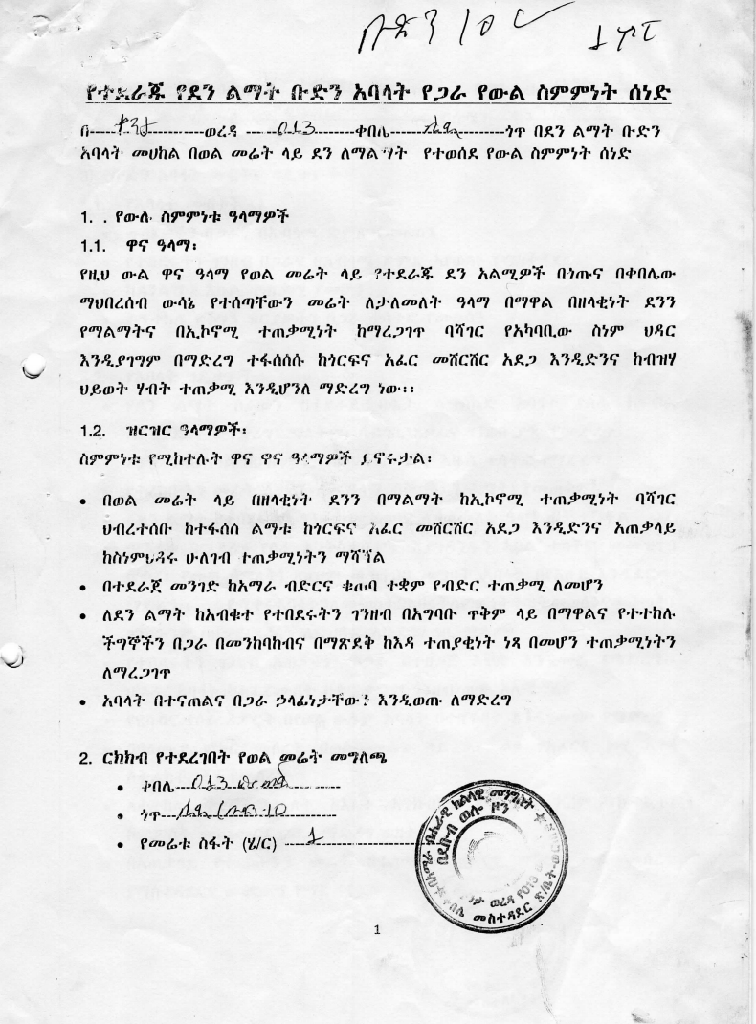 ቡድን 10
የተደራጁ የደን ልማት ቡድን አባላት የጋራ የውል ስምምነት ሰነድ
በ---ቃንታ---ወረዳ ---013---ቀበሌ------ጎጥ በደን ልማት ቡድን
አባላት መሀከል በወል መሬት ላይ ደን ለማልማት የተወሰደ የውል ስምምነት ሰነድ
1. . የውሉ ስምምነቱ ዓላማዎች
1.1. ዋና ዓላማ፡
የዚህ ውል ዋና ዓላማ የወል መሬት ላይ የተደራጁ ደን አልሚዎች በጎጡና በቀበሌው
ማህበረሰብ ውሳኔ የተሰጣቸውን መሬት ለታለመለት ዓላማ በማዋል በዘላቂነት ደንን
የማልማትና በኢኮኖሚ ተጠቃሚነት ከማረጋገጥ ባሻገር የአካባቢው ስነም ህዳር
እንዲያገግም በማድረግ ተፋሰሰሱ ከጎርፍና አፈር መሸርሸር አደጋ እንዲድንና ከብዝሃ
ህይወት ሃብት ተጠቃሚ እንዲሆንለ ማድረግ ነው።፡
1.2. ዝርዝር ዓላማዎች፡
ስምምነቱ የሚከተሉት ዋና ዋና ዓላማዎች ይኖሩታል፡
• በወል መሬት ላይ በዘላቂነት ደንን በማልማት ከኢኮኖሚ ተጠቃሚነት ባሻገር
ህብረተሰቡ ከተፋሰስ ልማቱ ከጎርፍና አፈር መሸርሸር አደጋ እንዲድንና አጠቃላይ
ከስነምህዳሩ ሁለገብ ተጠቃሚነትን ማሻሻል
• በተደራጀ መንገድ ከአማራ ብድርና ቁጠባ ተቋም የብድር ተጠቃሚ ለመሆን
• ለደን ልማት ከአብቁተ የተበደሩትን ገንዘብ በአግባቡ ጥቅም ላይ በማዋልና የተተከሉ
ችግኞችን በጋራ በመንከባከብና በማጽደቅ ከእዳ ተጠያቂነት ነጻ በመሆን ተጠቃሚነትን
ለማረጋገጥ
• አባላት በተናጠልና በጋራ ኃላፊነታቸውን እንዲወጡ ለማድረግ
2. ርክክብ የተደረገበት የወል መሬት መግለጫ
• ቀበሌ---013---
• ጎጥ------10---
• የመሬቱ ስፋት (ሄ/ር) ---1---
በደቡብ ወሎ ዞን
ወረዳ የ013
አስተዳደር ጽ/ቤት
1